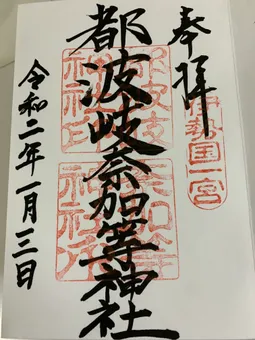 奉拝
伊勢国一宮
都波岐奈加等神社
令和二年一月三日